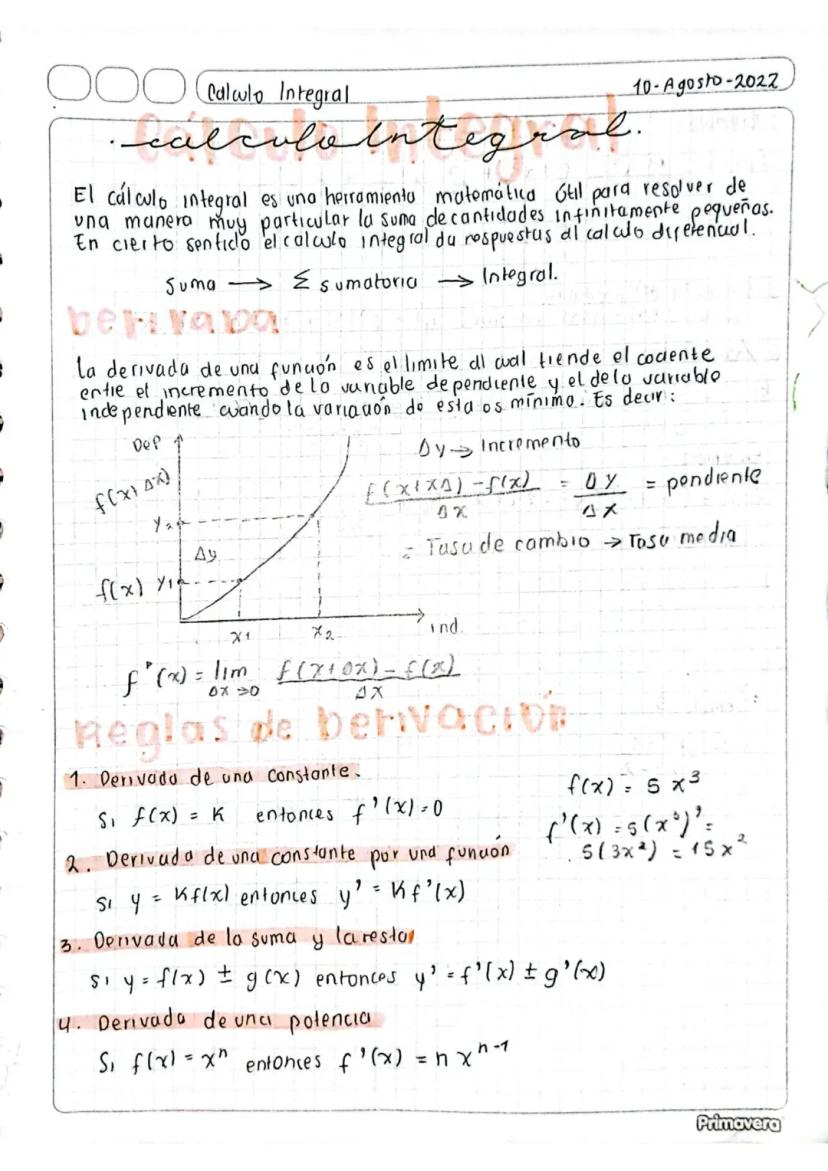 Calculo Integral 10-Agosto-2022
Cálculo Integral
·calculo Integral.
El cálculo integral es una herramienta matemática útil para resolver de
una manera muy particular la suma de cantidades infinitamente pequeñas.
En cierto sentido el calculo integral da respuestas al calculo diferencial.
Suma → Σ sumatoria → Integral.
Derivada
La derivada de una función es el limite al cual tiende el cociente
entre el incremento de la variable dependiente y el de la variable
independiente cuando la variación de esta es mínimo. Es decir:
Dep
Δy → Incremento
f(x+Δx)
f(x+xΔ)-f(x) / Δx = Δy / Δx = pendiente
y₂
Δy
= Tasa de cambio → Tasa media
f(x) y₁
x₁ x₂ ind.
f'(x) = lim Δx→0 f(x+Δx)-f(x) / Δx
Reglas de Derivación
1. Derivada de una constante.
f(x) = 5x³
Si f(x) = K entonces f'(x)=0
f'(x) = 5(x³)' =
5(3x²) = 15x²
2. Derivada de una constante por una función
Si y = Kf(x) entonces y' = Kf'(x)
3. Derivada de la suma y la resta
Si y = f(x) ± g(x) entonces y' = f'(x) ± g'(x)
4. Derivada de una potencia
Si f(x) = xⁿ entonces f'(x) = n xⁿ⁻¹
Primavera